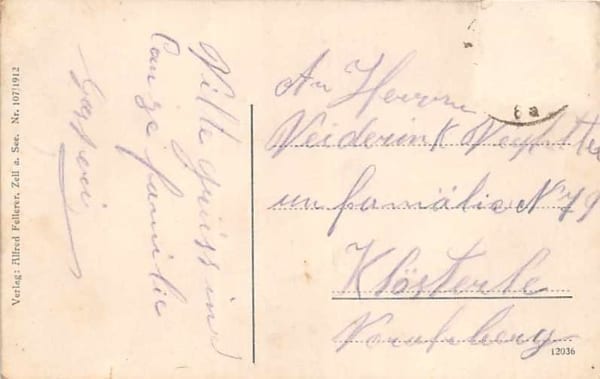 Verlag: Alfred Fellerer, Zell a. See. Nr. 107/1912
Ville grüss in
Canze familie
An Herrn
Veiderink
un familie N 79
Klösterle
Vorarlberg
6a
12036